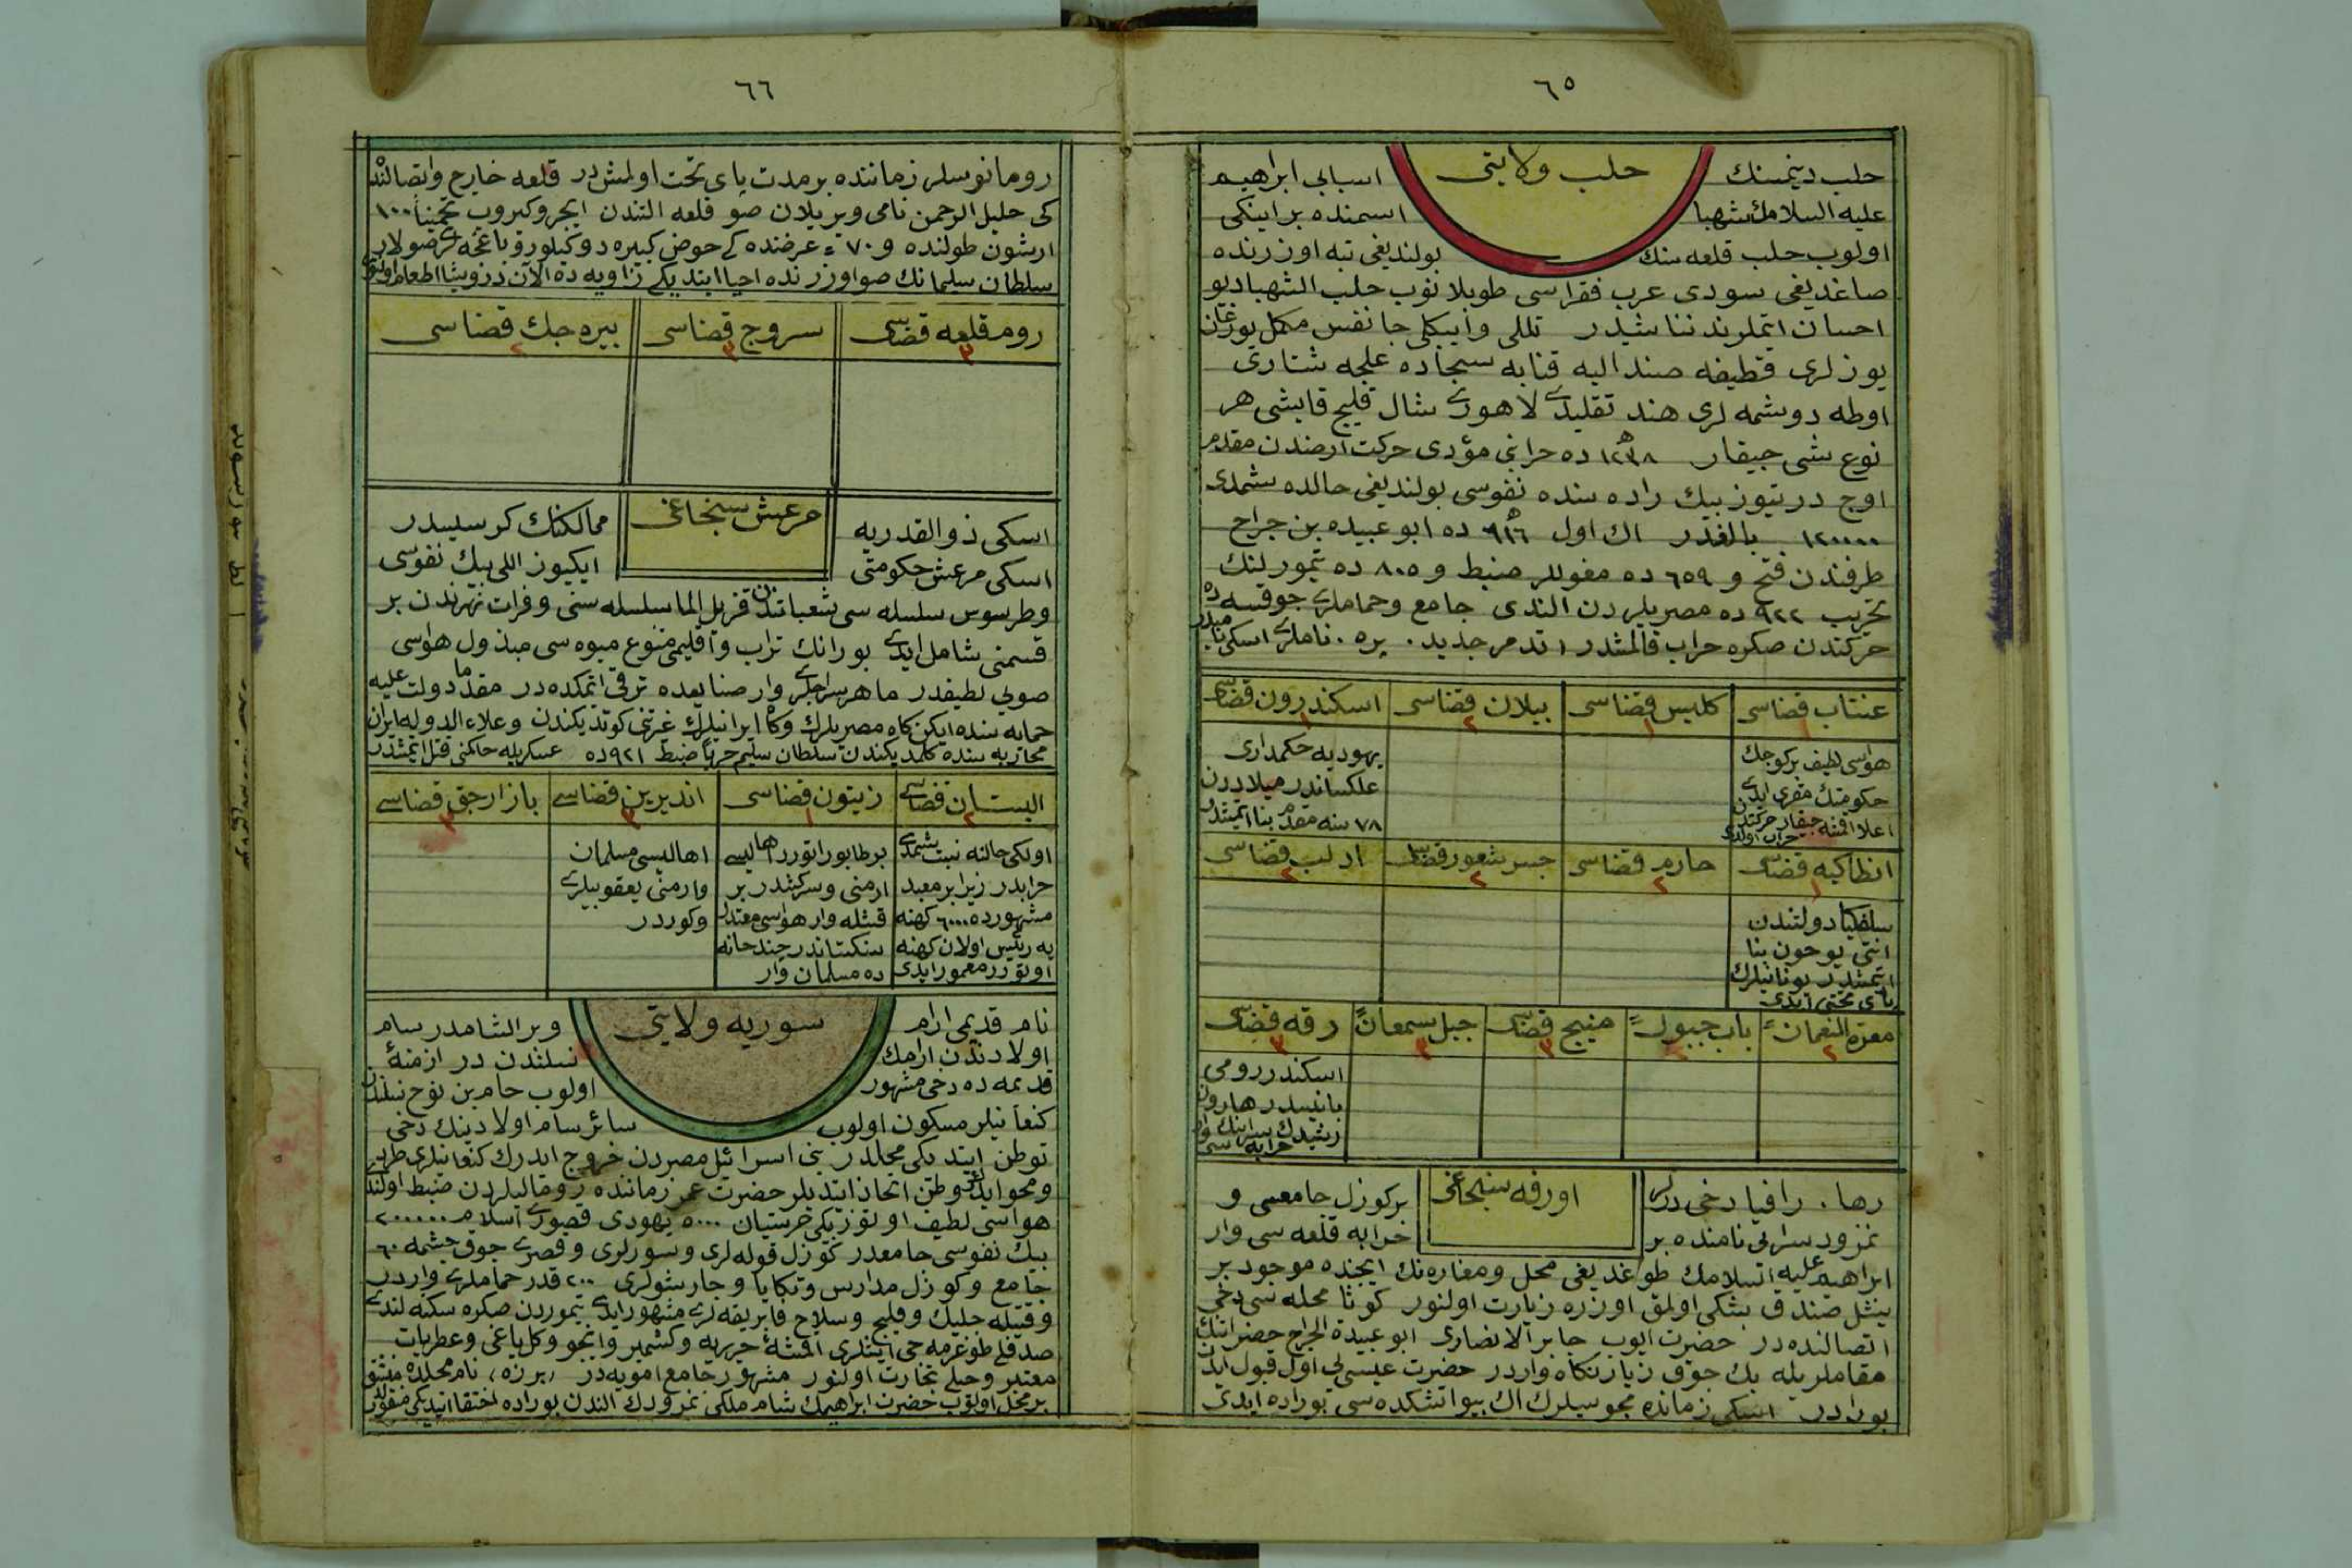 ٦٥
حلب ولايتى
حلب دينمسنك اسبابى ابراهيم
عليه السلامك شهبا اسمنده بر اينكى
اولوب حلب قلعه سنك بولنديغى تپه اوزرنده
صاغديغى سودى عرب فقراسى طوپلانوب حلب الشهبا ديو
احسان ايتملرندن ناشيدر تللى وايپكلى جانفس مكمل يورغان
يوزلرى قطيفه صنداليه قنابه سجاده علجه شتارى
اوطه دوشمه لرى هند تقليدى لاهورى شال قليج قايشى هر
نوع شى چيقار ١٢٣٨ ده خرابى مؤدى حركت ارضدن مقدم
اوچ درتيوز بيك راده سنده نفوسى بولنديغى حالده شمدى
١٢٠٠٠٠ بالغدر اك اول ٩١٦ ده ابو عبيده بن جراح
طرفندن فتح و ٦٥٩ ده مغوللر ضبط و ٨٠٥ ده تيمورلنك
تخريب ٩٢٢ ده مصريلردن الندى جامع وحماملرى چوقسه ده
حركتدن صكره خراب قالمشدر تدمر جديد . بره . ناملرى اسكى
عنتاب قضاسى ١
كليس قضاسى ١
بيلان قضاسى ٢
اسكندرون قضاسى ١
هواسى لطيف بر كوچك
حكومتك مقرى ايدى
اعلا اقمشه چيقار حركتدن
خراب اولدى
يهوديه حكمدارى
علكساندر ميلاددن
٧٨ سنه مقدم بنا ايتمشدر
انطاكيه قضاسى ١
حارم قضاسى ٢
جسر شغور قضاسى ٢
ادلب قضاسى ٢
سلفكيا دولتندن
انتى يوخون بنا
ايتمشدر يونانيلرك
پاى تختى ايدى
معرة النعمان ٢
باب جبول ٢
منبج قضاسى ٣
جبل سمعان ٣
رقه قضاسى ٣
اسكندر رومى
بانيسدر هارون
رشيدك سراينك وار
خرابه سى
اورفه سنجاغى
رها . رافيا دخى ديرلر بر كوزل جامعسى و
نمرود سرايى نامنده بر خرابه قلعه سى وار
ابراهيم عليه السلامك طوغديغى محل ومغاره نك ايچنده موجود بر
يشل صندق بشكى اولمق اوزره زيارت اولنور كوثا محله سى دخى
اتصالنده در حضرت ايوب جابر الانصارى ابو عبيدة الجراح حضراتنك
مقاملريله پك چوق زيارتكاه واردر حضرت عيسى يى اول قبول ايدن
بورادر اسكى زمانده مجوسيلرك اك بيو اتشكده سى بوراده ايدى
٦٦
رومانوسلر زماننده بر مدت پاى تخت اولمشدر قلعه خارج واتصالنده
كى خليل الرحمن نامى ويريلان صو قلعه التندن ايچرو كيروب تخمينا ١٠٠
ارشون طولنده و ٧٠ عرضنده كى حوض كبيره دوكيلور و باغچه لرى صولار
سلطان سليمانك صو اوزرنده احيا ايتديكى زاويه ده الان درويشا اطعام اولنور
روم قلعه قضاسى ٣
سروج قضاسى ٣
بيره جك قضاسى ٢
مرعش سنجاغى
اسكى ذو القدريه ممالكنك كرسيسيدر
اسكى مرعش حكومتى ايكيوز اللى بيك نفوسى
وطرسوس سلسله سى شعباتندن قزيل الما سلسله سنى وفرات نهرندن بر
قسمنى شامل ايدى بورانك تراب واقليمى متنوع ميوه سى مبذول هواسى
صويى لطيفدر ماهر سراجلرى وار صنايعده ترقى ايتمكده در مقدما دولت عليه
حمايه سنده ايكن كاه مصريلرك وكاه ايرانيلرك غرتنى كوتديكندن وعلاء الدوله ايران
محاربه سنده كلمديكندن سلطان سليم حربا ضبط ٩٢١ ده عسكريله حاكمنى قتل ايتمشدر
البستان قضاسى ٢
زيتون قضاسى ١
انديرين قضاسى ٣
بازارجق قضاسى ٣
اولكى حالنه نسبت شمدى
خرابدر زيرا بر معبد
مشهورده ٦٠٠٠ كهنه
يه رئيس اولان كهنه
اوتورر معمور ايدى
بر طابور اتورر اهاليسى
ارمنى وسركشدر بر
قشله وار هواسى معتدل
سنكستاندر چند خانه
ده مسلمان وار
اهاليسى مسلمان
وارمنى يعقوبيلرى
وكوردر
سوريه ولايتى
نام قديمى ارام وبر الشامدر سام
اولادندن ارامك نسلندن در ازمنهٔ
قديمه ده دخى مشهور اولوب حام بن نوح نسلندن
كنعانيلر مسكون اولوب سائر سام اولادينك دخى
توطن ايتديكى محللدر بنى اسرائيل مصردن خروج ايدرك كنعانيلرى طرد
ومحو ايدوب وطن اتخاذ ايتديلر حضرت عمر زماننده رومالیلردن ضبط اولندى
هواسى لطيف اوتوز بيكى خرستيان ٥٠٠٠ يهودى قصورى اسلام ٢٠٠٠٠٠
بيك نفوسى جامعدر كوزل قوله لرى وسورلرى وقصرى چوق چشمه ٦٠
جامع وكوزل مدارس وتكايا وچارشولرى ٢٠٠ قدر حماملرى واردر
وقتيله چليك وقليج وسلاح فابريقه لرى مشهور ايدى تيموردن صكره سكته لندى
صدفلى طوغرمه جى ايشلرى اقمشهٔ حريريه وكشمير وانجو وكل ياغى وعطريات
معتبر وخيلى تجارت اولنور مشهور جامع امويه در ، برزه ، نام محلده
بر محل اولوب حضرت ابراهيمك شام ملكى نمرودك الندن بوراده اختفا ايتديكى منقولدر